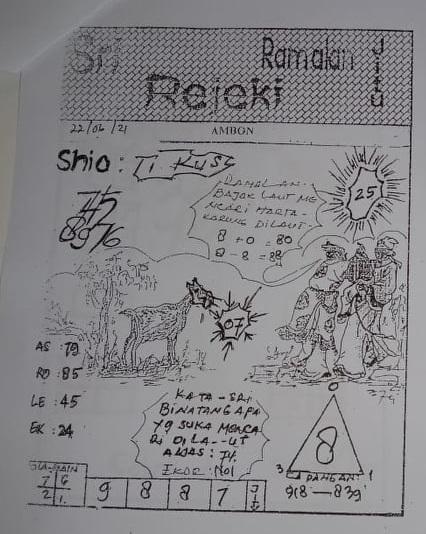 Sri
Ramalan
Jitu
Rejeki
22/06/21
AMBON
Shio : TIKUS
RAMALAN
BAJAK LAUT ME
NCARI HARTA-
KARUNG DILAUT
8 + 0 = 80
8 - 8 = 88
25
8976
07
AS : 79
RO : 85
LE : 45
EK : 24
KATA - SRI
BINATANG APA
YG SUKA MENCA
RI DI LA - UT
AWAS : 74
EKOR : NOL
0
8
3
1
PANGAN
918 — 839
7 6
2 1
9 8 8 7
JITU